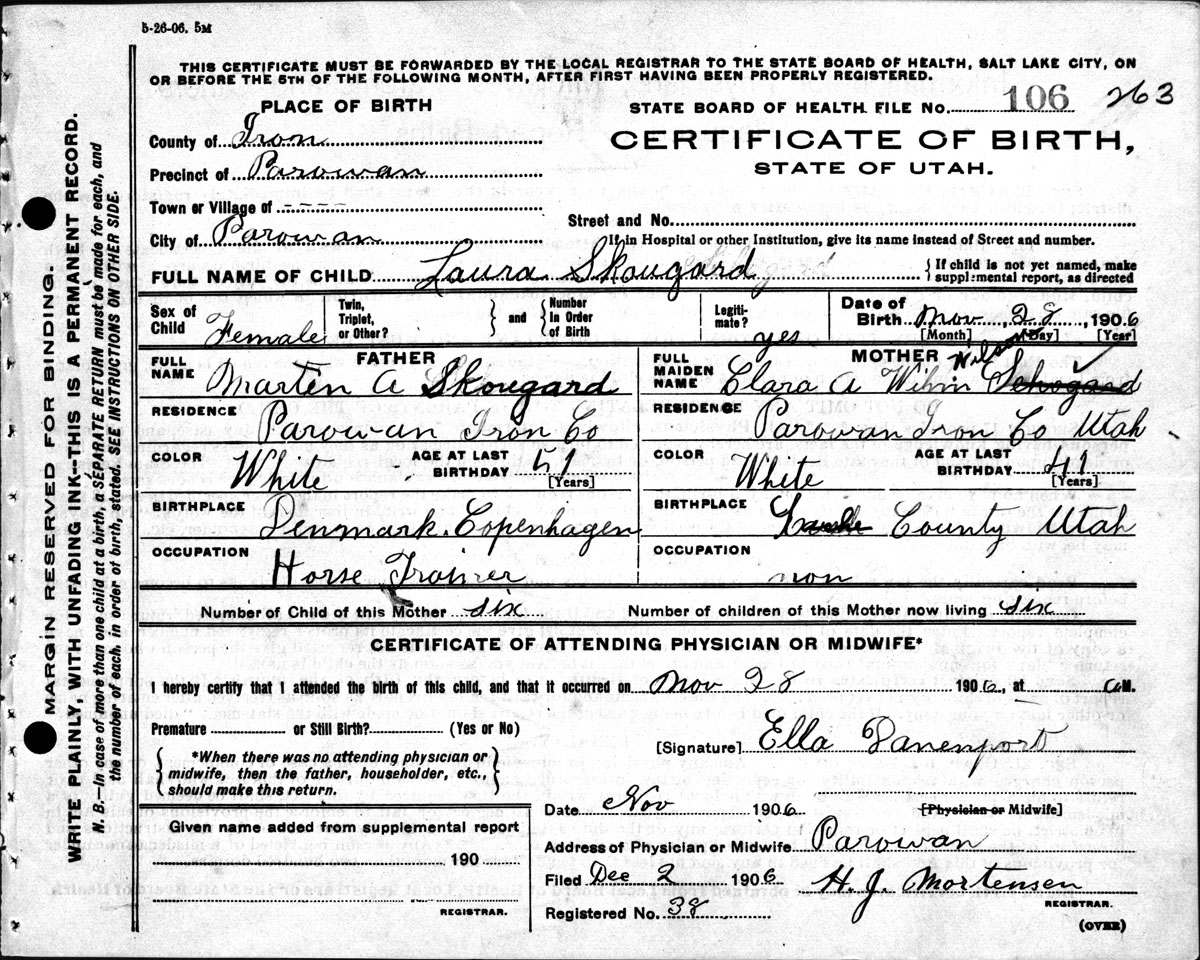 5-26-06. 5M
THIS CERTIFICATE MUST BE FORWARDED BY THE LOCAL REGISTRAR TO THE STATE BOARD OF HEALTH, SALT LAKE CITY, ON
OR BEFORE THE 5TH OF THE FOLLOWING MONTH, AFTER FIRST HAVING BEEN PROPERLY REGISTERED.
PLACE OF BIRTH
STATE BOARD OF HEALTH FILE No. 106 263
County of Iron
CERTIFICATE OF BIRTH,
Precinct of Parowan
STATE OF UTAH.
Town or Village of ----
Street and No.
City of Parowan
If in Hospital or other Institution, give its name instead of Street and number.
FULL NAME OF CHILD Laura Skougard
{ If child is not yet named, make
supplemental report, as directed
Sex of Child Female
Twin, Triplet, or Other? } and { Number in Order of Birth
Legiti-mate? yes
Date of Birth Nov, 28, 1906
[Month] [Day] [Year]
FATHER
FULL NAME Marten A Skougard
RESIDENCE Parowan Iron Co
COLOR White AGE AT LAST BIRTHDAY 51 [Years]
BIRTHPLACE Denmark. Copenhagen
OCCUPATION Horse Trainer
MOTHER
FULL MAIDEN NAME Clara A Wilson
RESIDENCE Parowan Iron Co Utah
COLOR White AGE AT LAST BIRTHDAY 41 [Years]
BIRTHPLACE County Utah
OCCUPATION non
Number of Child of this Mother six Number of children of this Mother now living six
CERTIFICATE OF ATTENDING PHYSICIAN OR MIDWIFE*
I hereby certify that I attended the birth of this child, and that it occurred on Nov 28 1906, at M.
Premature or Still Birth? (Yes or No)
[Signature] Ella Davenport
{ *When there was no attending physician or
midwife, then the father, householder, etc.,
should make this return. }
Date Nov 1906 [Physician or Midwife]
Given name added from supplemental report
190
REGISTRAR.
Address of Physician or Midwife Parowan
Filed Dec 2 1906 H. J. Mortensen
REGISTRAR.
Registered No. 38
(OVER)
MARGIN RESERVED FOR BINDING.
WRITE PLAINLY, WITH UNFADING INK--THIS IS A PERMANENT RECORD.
N. B.—In case of more than one child at a birth, a SEPARATE RETURN must be made for each, and
the number of each, in order of birth, stated. SEE INSTRUCTIONS ON OTHER SIDE.